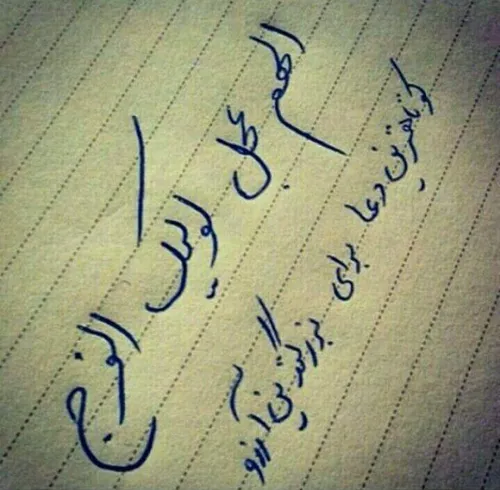 الهم عجل لولیک الفرج
کوتاهترین دعا برای بزرگترین آرزو